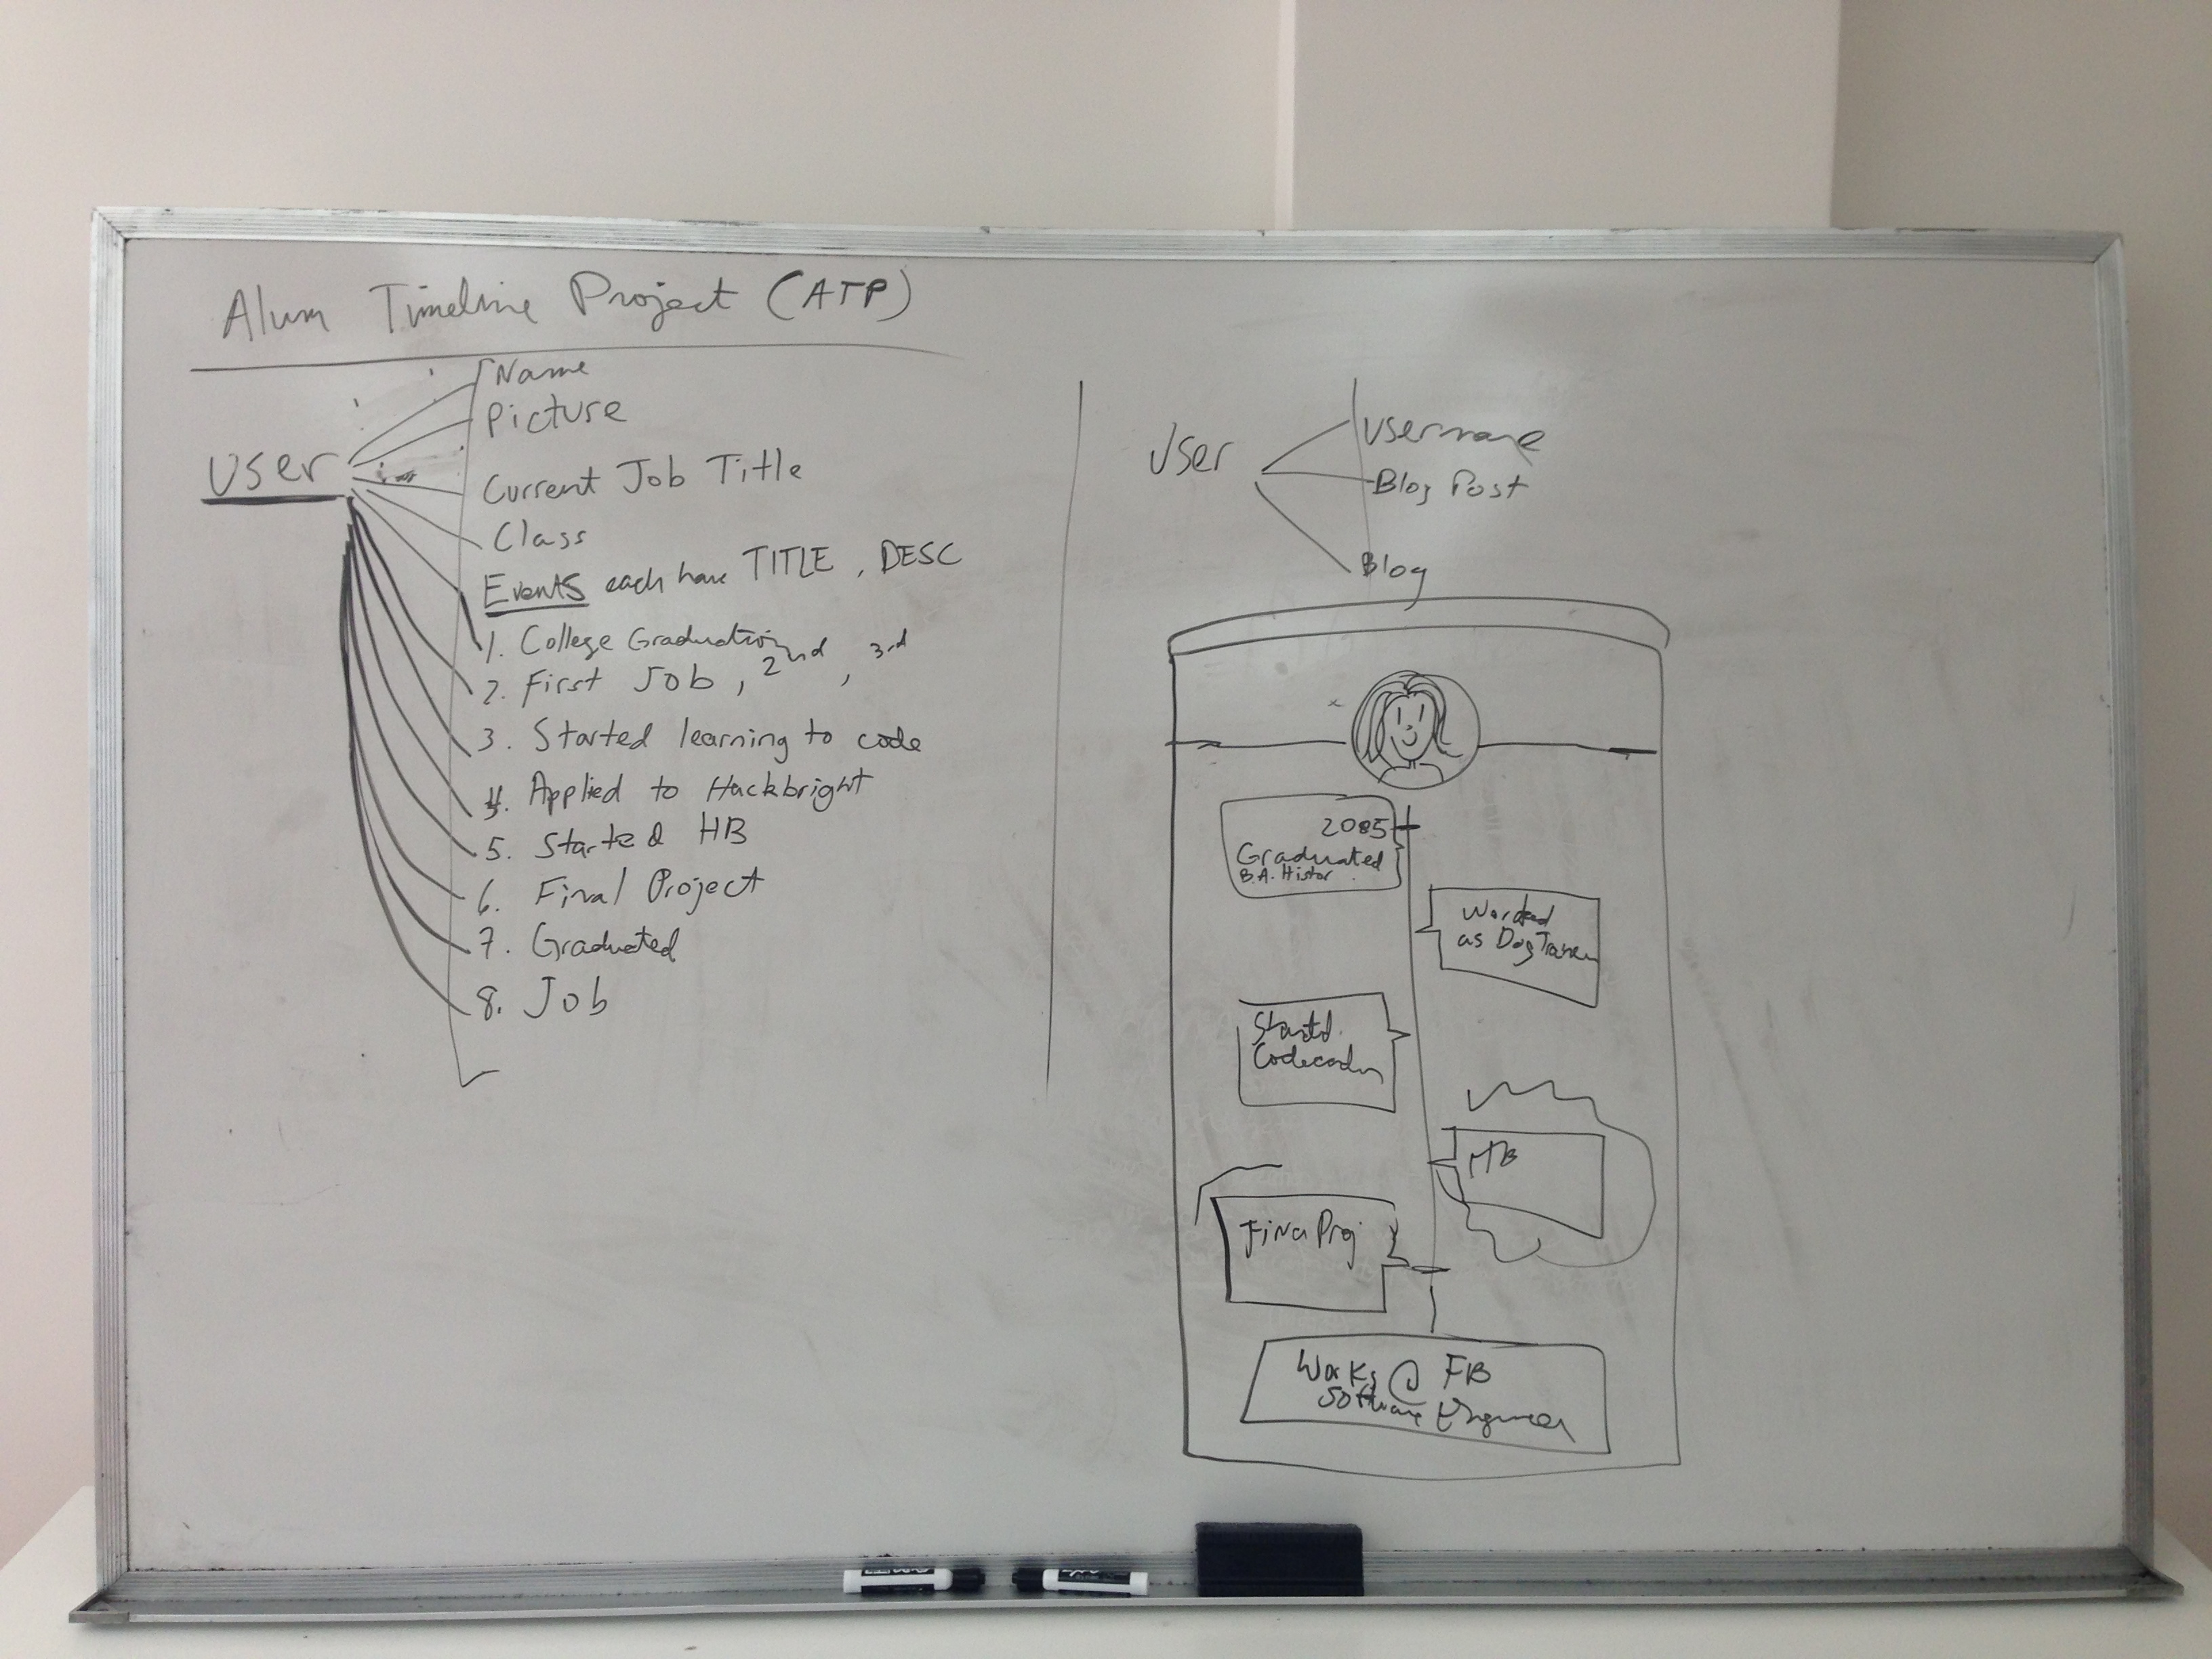 Alum Timeline Project (ATP)
User
Name
Picture
Current Job Title
Class
Events each have TITLE, DESC
1. College Graduation
2. First Job, 2nd, 3rd
3. Started learning to code
4. Applied to Hackbright
5. Started HB
6. Final Project
7. Graduated
8. Job
User
Username
Blog Post
Blog
Graduated
B.A. Histor
Worked
as Dog
HB
Proj
Works @ FB
Software Engineer